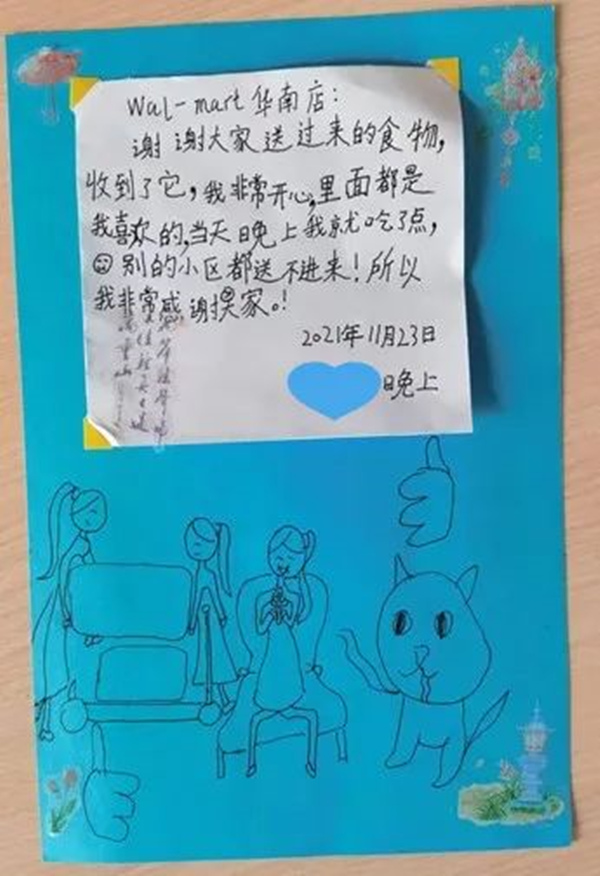 Wal-mart华南店:
谢谢大家送过来的食物,
收到了它,我非常开心,里面都是
我喜欢的,当天晚上我就吃了点,
别的小区都送不进来!所以
我非常感谢大家。!
2021年11月23日
晚上